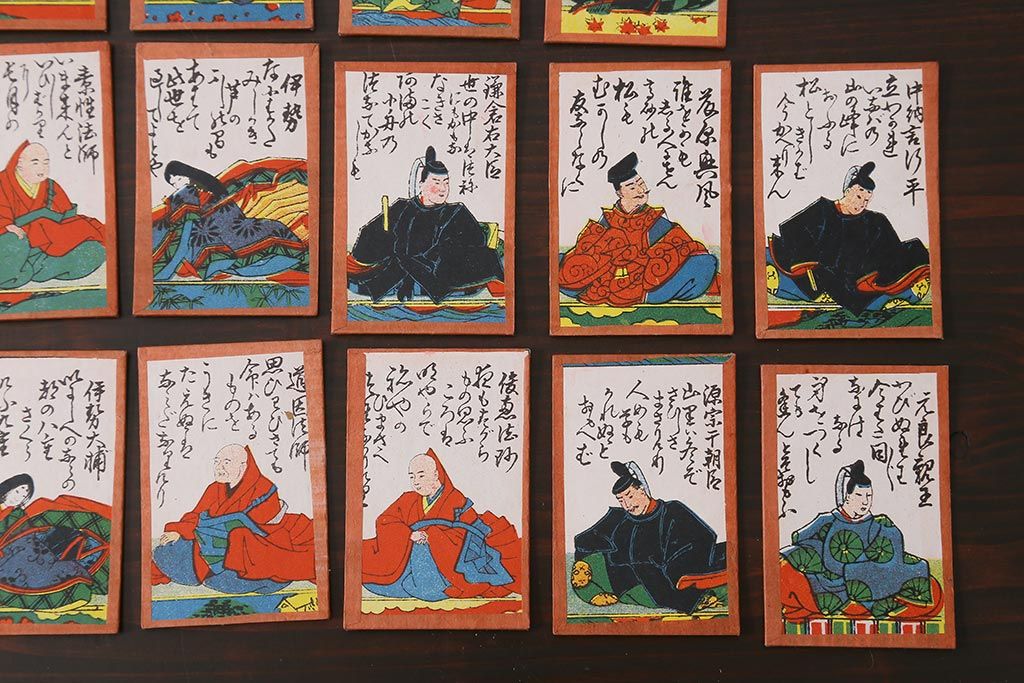 中納言行平
立わかれ
いなばの
山の峰に
おふる
松とし
きかば
今かへりこん
藤原興風
誰をかも
しる人にせん
高砂の
松も
むかしの
友ならなくに
鎌倉右大臣
世の中は常
にもがもな
なぎさこぐ
あまの小舟の
つなでかなしも
伊勢
なにはがた
みじかき
芦の
ふしのまも
あはで
此世を
過してよとや
素性法師
いま来んと
いひしばかりに
長月の
元良親王
わびぬれば
今はた同じ
なにはなる
身をつくし
ても
逢はんとぞ思ふ
源宗于朝臣
山里は冬ぞ
さびしさ
まさりける
人めも
草も
かれぬと
おもへば
俊恵法師
夜もすがら
もの思ふ
ころは
明やらで
ねやの
ひまさへ
道因法師
思ひわびさても
命はある
ものを
うきに
たえぬは
なみだなりけり
伊勢大輔
いにしへのならの
都の八重
さくら
けふ九重